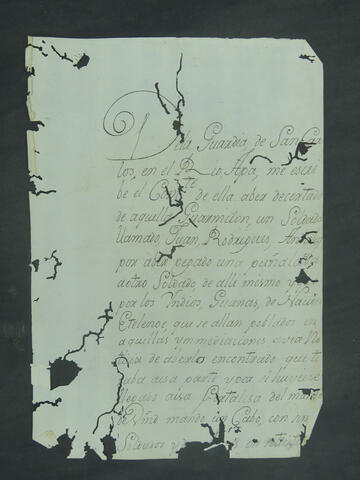 De la Guardia de San Car
los, en el Rio Apa, me escri
be el Comte de ella aber decertado
de aquella Guarnicion, un Soldado
llamado, Juan, Rodrigues,
por aber pegado una puñalada
aotro Soldado de alli mismo y
por los Yndios, Guanas, de Nacion
que se allan poblados en
aquellas ynmediaciones
de aberlo encontrado que
aba aesa parte y pa si huviere
llegado aesa del
de Vmd mande un Cabo, con
Soldados y